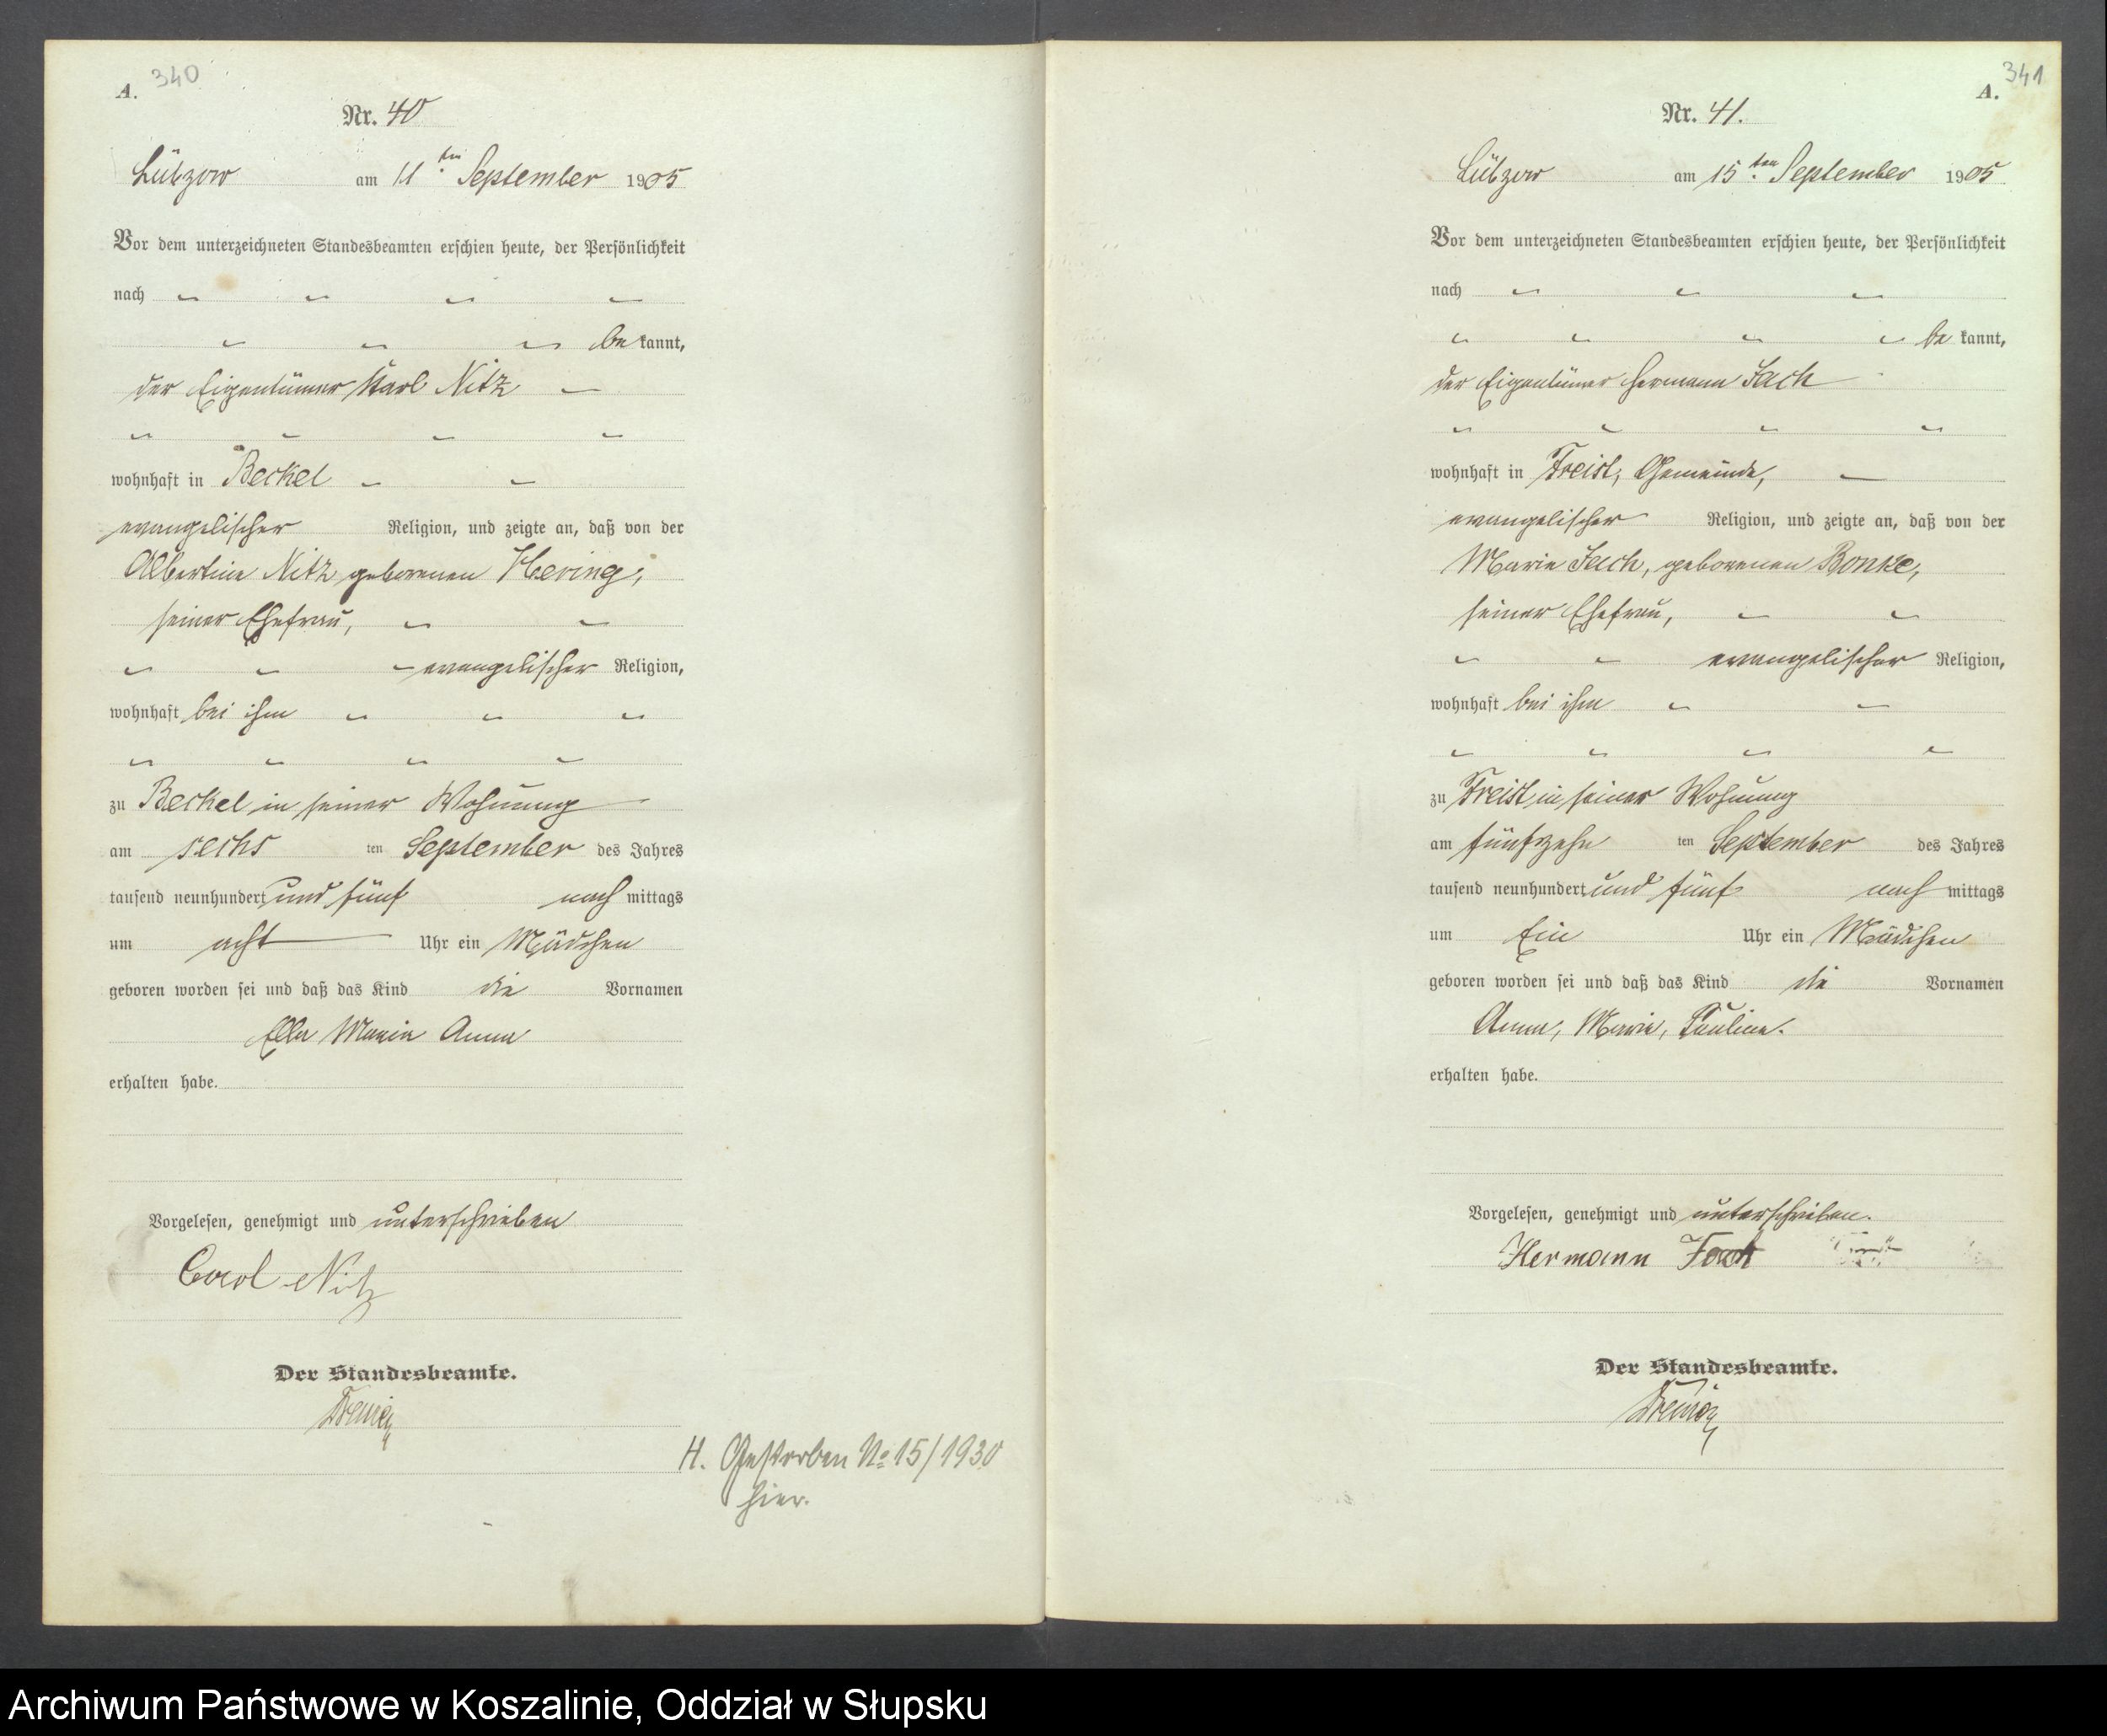 A. 340
Nr. 40
Lübzow am 11ten September 1905
Vor dem unterzeichneten Standesbeamten erschien heute, der Persönlichkeit
nach
be kannt,
der Eigentümer Karl Nitz
wohnhaft in Beckel
evangelischer Religion, und zeigte an, daß von der
Albertine Nitz geborenen Hering,
seiner Ehefrau,
evangelischer Religion,
wohnhaft bei ihm
zu Beckel in seiner Wohnung
am sechs ten September des Jahres
tausend neunhundert und fünf nach mittags
um acht Uhr ein Mädchen
geboren worden sei und daß das Kind die Vornamen
Ella Maria Anna
erhalten habe.
Vorgelesen, genehmigt und unterschrieben
Carl Nitz
Der Standesbeamte.
H. Gestorben No 15/1930
hier.
341
A.
Nr. 41.
Lübzow am 15ten September 1905
Vor dem unterzeichneten Standesbeamten erschien heute, der Persönlichkeit
nach
be kannt,
der Eigentümer Hermann
wohnhaft in Freist, Gemeinde,
evangelischer Religion, und zeigte an, daß von der
Marie geborenen Bonke,
seiner Ehefrau,
evangelischer Religion,
wohnhaft bei ihm
zu Freist in seiner Wohnung
am fünfzehn ten September des Jahres
tausend neunhundert und fünf nach mittags
um Ein Uhr ein Mädchen
geboren worden sei und daß das Kind die Vornamen
Anna, Marie, Pauline.
erhalten habe.
Vorgelesen, genehmigt und unterschrieben.
Hermann
Der Standesbeamte.
Archiwum Państwowe w Koszalinie, Oddział w Słupsku